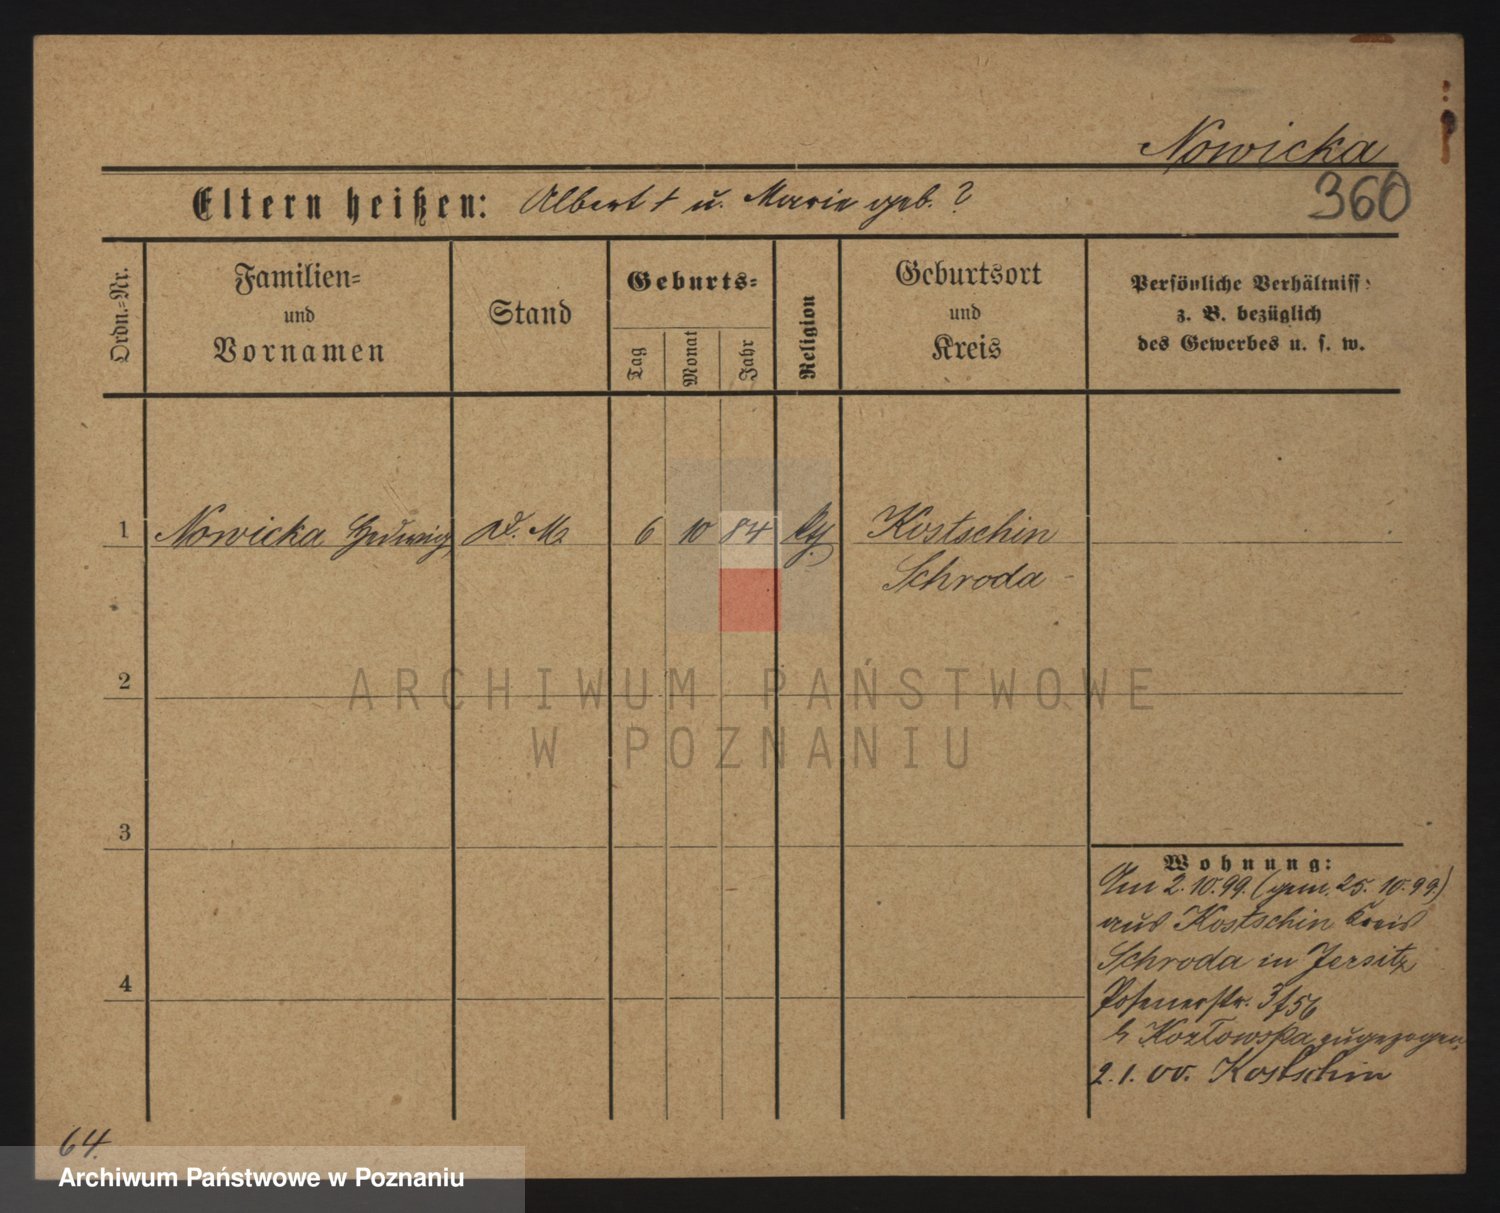 Nowicka
360
Eltern heißen: Albert + u. Marie geb. ?
Ordn.-Nr.
Familien-
und
Vornamen
Stand
Geburts-
Tag
Monat
Jahr
Religion
Geburtsort
und
Kreis
Persönliche Verhältniss
z. B. bezüglich
des Gewerbes u. s. w.
1 Nowicka Hedwig D. M. 6 10 84 Kostschin
Schroda
2
3
4
Wohnung:
Am 2.10.99. (gem. 25.10.99.)
aus Kostschin Kreis
Schroda in Jersitz
Posenerstr.
b Kozłowska zugezogen
2.1.00. Kostschin
64.
ARCHIWUM PAŃSTWOWE
W POZNANIU
Archiwum Państwowe w Poznaniu